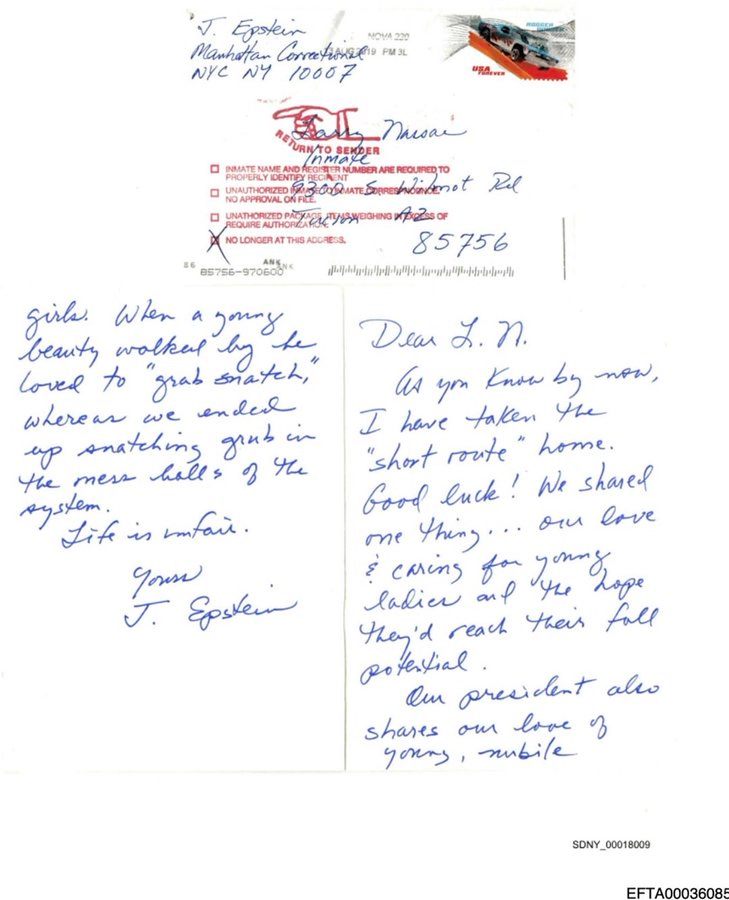 J. Epstein
Manhattan Correctional
NYC NY 10007
NOVA 220
AUG 2019 PM 3L
USA
FOREVER
Larry Nassar
Inmate
9300 S. Wilmot Rd
Tucson AZ
85756
RETURN TO SENDER
INMATE NAME AND REGISTER NUMBER ARE REQUIRED TO
PROPERLY IDENTIFY RECIPIENT
UNAUTHORIZED INMATE TO INMATE CORRESPONDENCE.
NO APPROVAL ON FILE.
UNATHORIZED PACKAGE ITEMS WEIGHING IN EXCESS OF
REQUIRE AUTHORIZATION.
NO LONGER AT THIS ADDRESS.
86
ANK
85756-970600
Dear L. N.
As you know by now,
I have taken the
"short route" home.
Good luck! We shared
one thing... our love
& caring for young
ladies and the hope
they'd reach their full
potential.
Our president also
shares our love of
young, nubile
girls. When a young
beauty walked by he
loved to "grab snatch,"
whereas we ended
up snatching grub in
the mess halls of the
system.
Life is unfair.
Yours
J. Epstein
SDNY_00018009
EFTA00036085